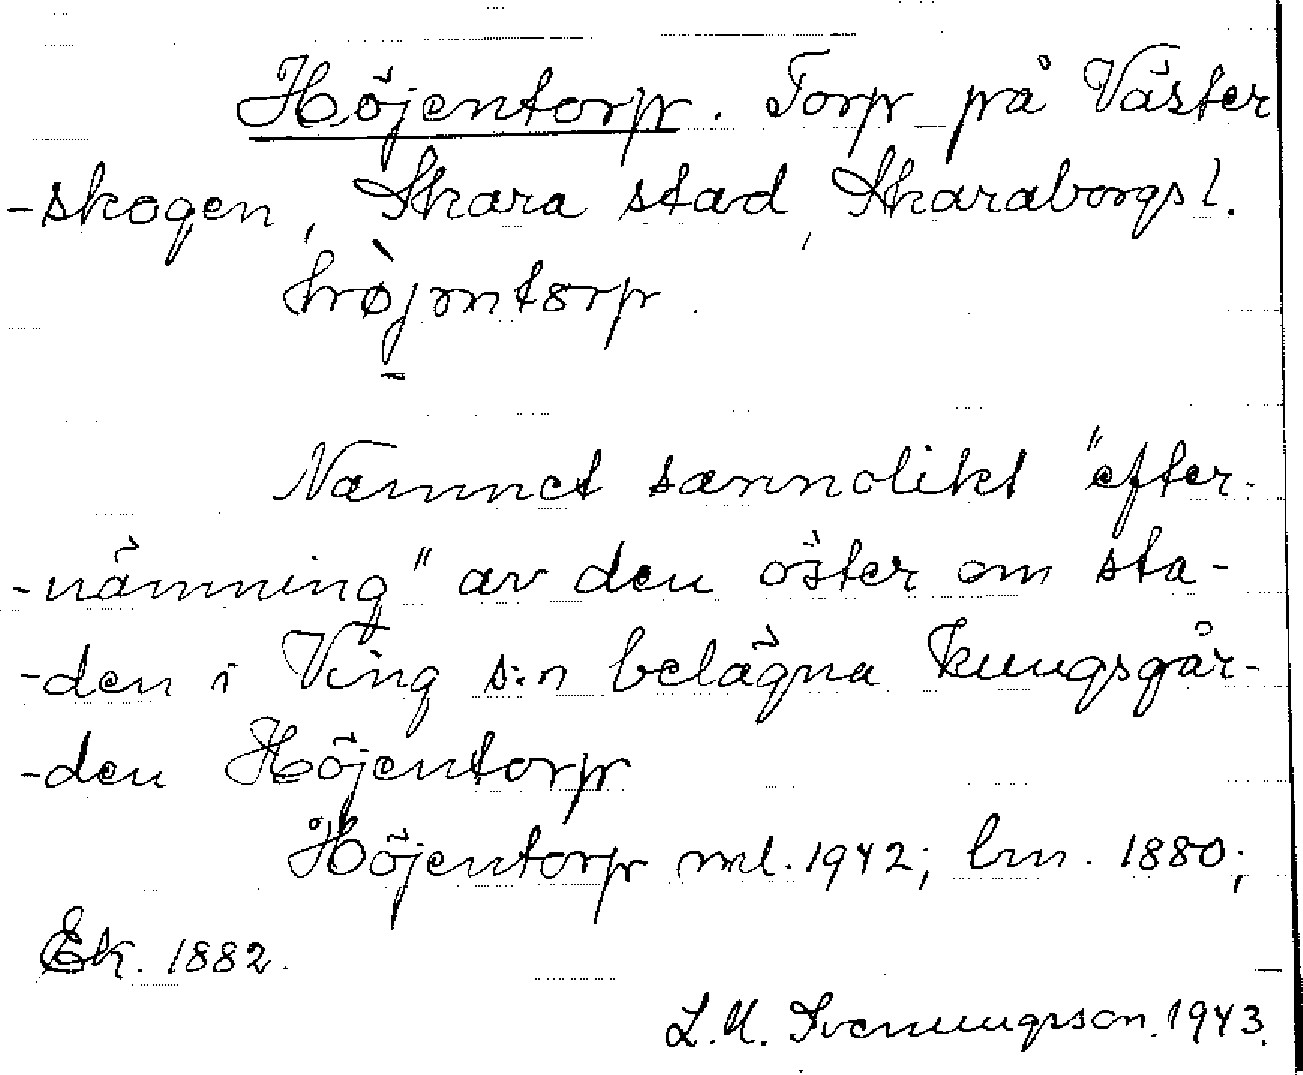 Höjentorp. Torp på Väster
-skogen, Skara stad, Skaraborgs l.
hòjontorp.
Namnet sannolikt "efter-
-nämning" av den öster om sta-
-den i Ving s:n belägna kungsgår-
-den Höjentorp
Höjentorp ml. 1942; lm. 1880;
Ek. 1882.
L. M. Svenungsson. 1943.